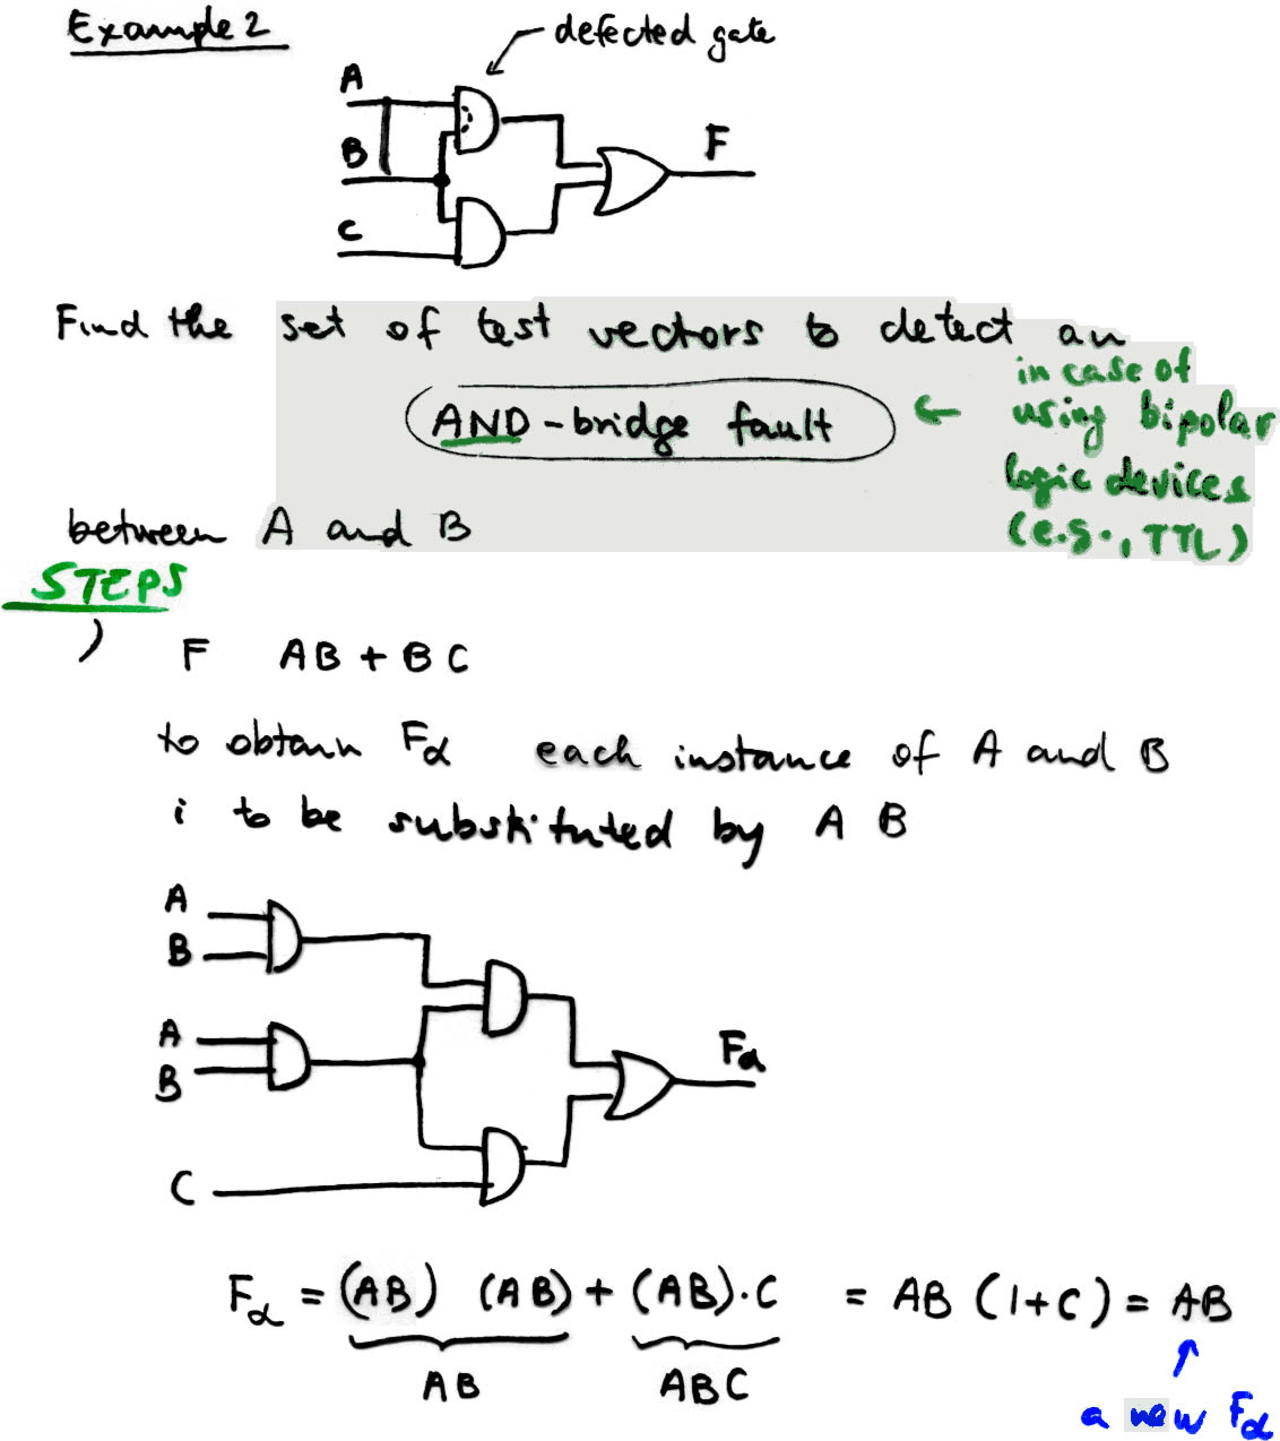 Example 2
defected gate
A
B
C
F
Find the set of test vectors to detect an
AND-bridge fault
←
in case of
using bipolar
logic devices
(e.g., TTL)
between A and B
STEPS
) F AB + BC
to obtain Fα each instance of A and B
i to be substituted by A B
A
B
A
B
C
Fα
Fα = (AB) (AB) + (AB)·C = AB (1+C) = AB
AB ABC
a new Fα